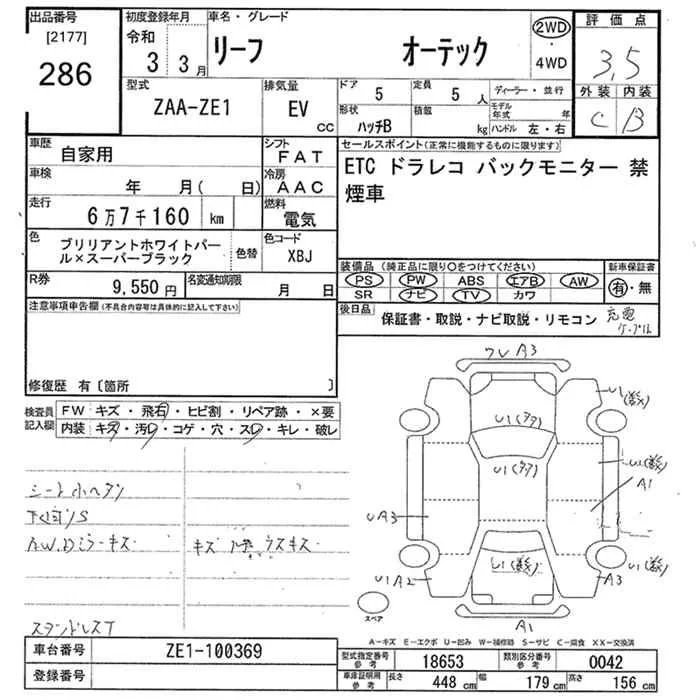 出品番号
[2177]
286
初度登録年月
令和
3 3月
車名・グレード
リーフ オーテック
2WD
・
4WD
評価点
3.5
外装 内装
C B
型式
ZAA-ZE1
排気量
EV
cc
ドア
5
定員
5 人
形状
ハッチB
積載
kg
ディーラー・並行
モデル年式 年
ハンドル 左・右
車歴
自家用
シフト
FAT
車検
年 月( 日)
冷房
AAC
走行
6万7千160 km
燃料
電気
色
ブリリアントホワイトパー
ル×スーパーブラック
色替
色コード
XBJ
R券
9,550円
名変通知期限
月 日
セールスポイント(正常に機能するものに限ります)
ETC ドラレコ バックモニター 禁
煙車
装備品 (純正品に限り○をつけてください)
PS PW ABS エアB AW
SR ナビ TV カワ
新車保証書
有・無
後日品
保証書・取説・ナビ取説・リモコン
充電
ケーブル
注意事項申告欄(不具合内容等は具体的に記入して下さい)
修復歴 有〔箇所 〕
検査員
記入欄
FW キズ・飛石・ヒビ割・リペア跡・×要
内装 キズ・汚レ・コゲ・穴・スレ・キレ・破レ
シート小ヘタリ
下回りS
A.W.Dミラーキズ
キズ ウスキズ
スタンドレスT
ワレA3
U1(多数)
U1(多数)
A1
UA3
U1A2
A3
U1(多数)
A1
スペア
A-キズ E-エクボ U-凹み W-補修跡 S-サビ C-腐食 XX-交換済
車台番号
ZE1-100369
登録番号
型式指定番号
参考
18653
類別区分番号
参考
0042
車庫証明用
参考
長さ
448 cm
幅
179 cm
高さ
156 cm